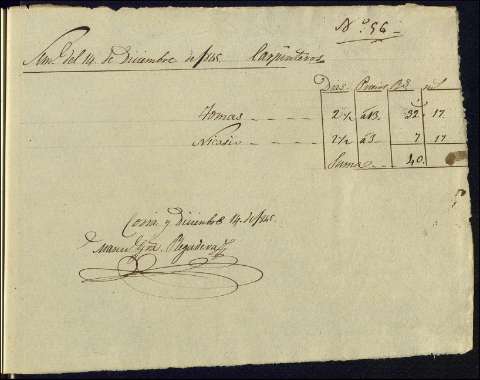 Nº. 56
Semª. del 14 de Diciembre de 1845. Carpinteros
Dias Precios Rs. ml
Tomas 2 1/2 á 13. 32. 17.
Nicasio 2 1/2 á 3. 7. 17
Suma 40.
y Diciembre 14 de 1845.
Manuel